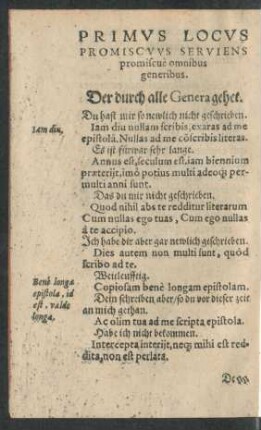 PRIMVS LOCVS
PROMISCVVS SERVIENS
promiscuè omnibus
generibus.
Der durch alle Genera gehet.
Du hast mir so newlich nicht geschrieben.
Iam diu,
Iam diu nullam scribis, exaras ad me
epistolã. Nullas ad me cõscribis literas.
Es ist fürwar sehr lange.
Annus est, seculum est, iam biennium
præterijt, imò potius multi adeoq́; per-
multi anni sunt.
Das du mir nicht geschrieben.
Quod nihil abs te redditur literarum
Cum nullas ego tuas, Cum ego nullas
à te accipio.
Ich habe dir aber gar newlich geschrieben.
Dies autem non multi sunt, quòd
scribo ad te.
Weitleufftig.
Benè longa
epistola, id
est, valde
longa.
Copiosam benè longam epistolam.
Dein schreiben aber, so du vor dieser zeit
an mich gethan.
Ac olim tua ad me scripta epistola.
Habe ich nicht bekommen.
Intercepta interijt, neq; mihi est red-
dita, non est perlata.